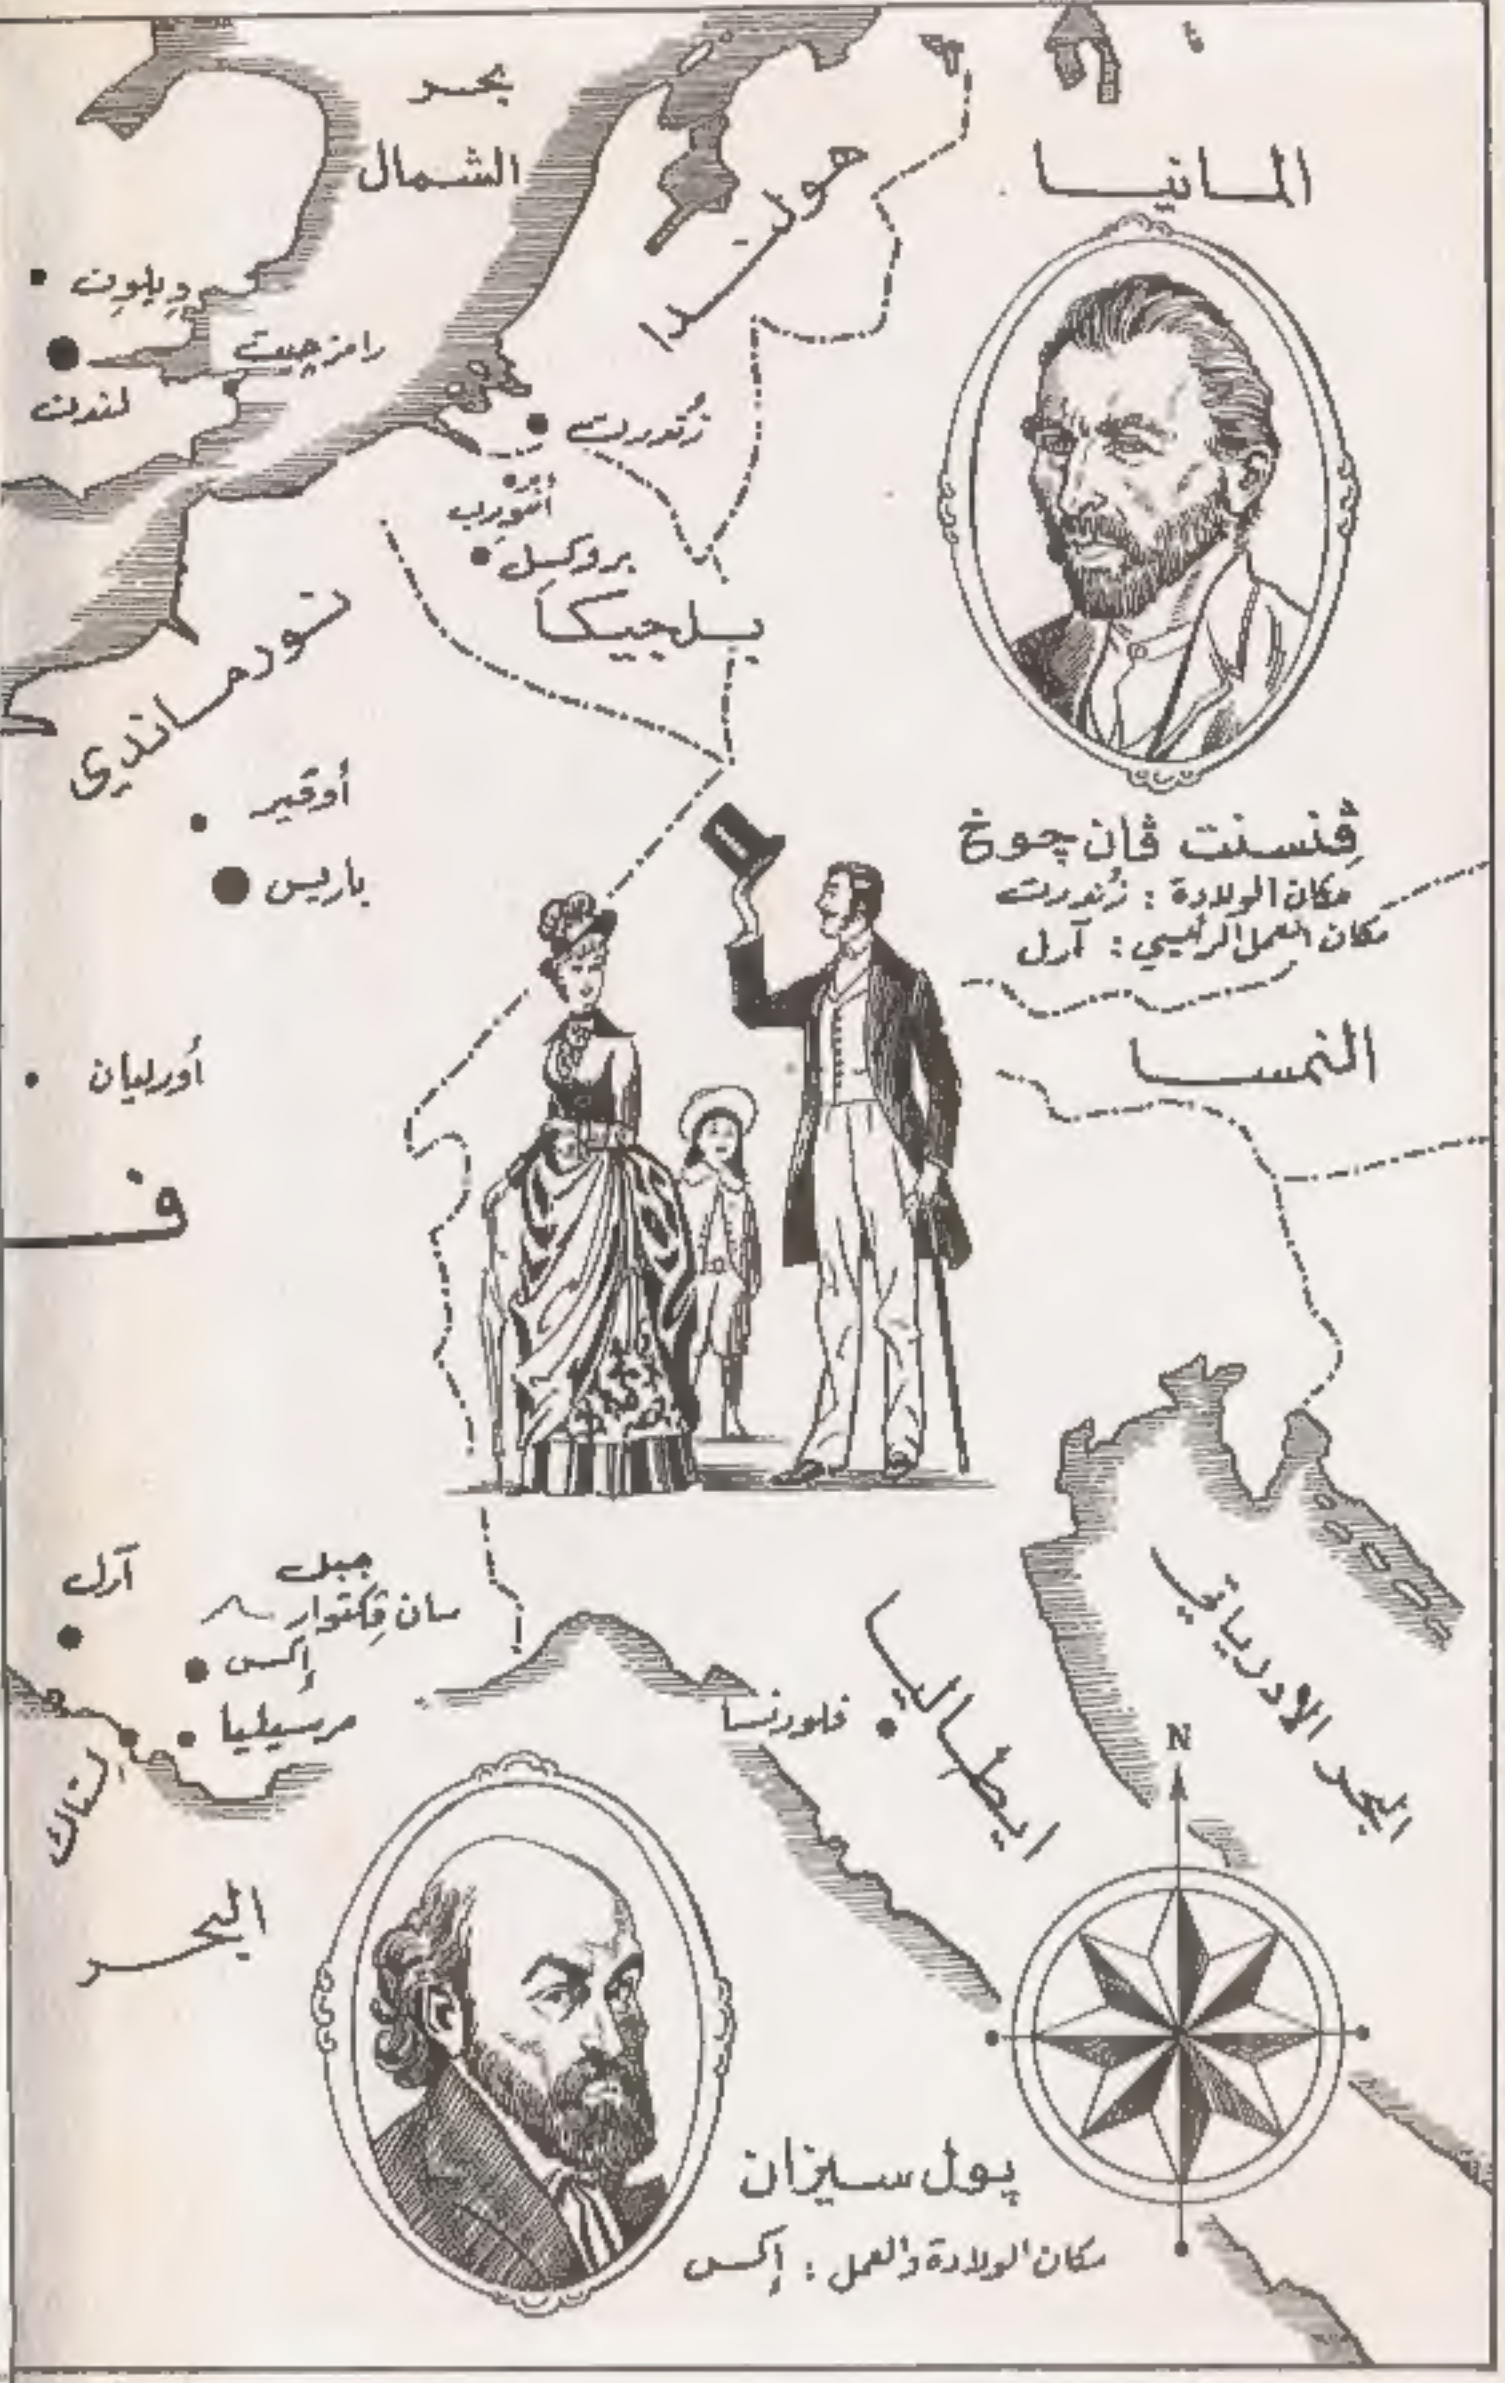 بحر
الشمال
هولندا
المانيا
ويلوين
رامزجيت
لندن
زُندرت
أنتويرب
بروكسل
بلجيكا
نورماندي
أوڤير
باريس
ڤِنسنت ڤان جوخ
مكان الولادة : زُندرت
مكان العمل الرئيسي : آرل
النمسا
أورليان
ف
آرل
جبل
سان ڤِكتوار
إكس
مرسيليا
فلورنسا
ايطاليا
البحر الادرياتي
N
البحر
پول سيزان
مكان الولادة والعمل : إكس